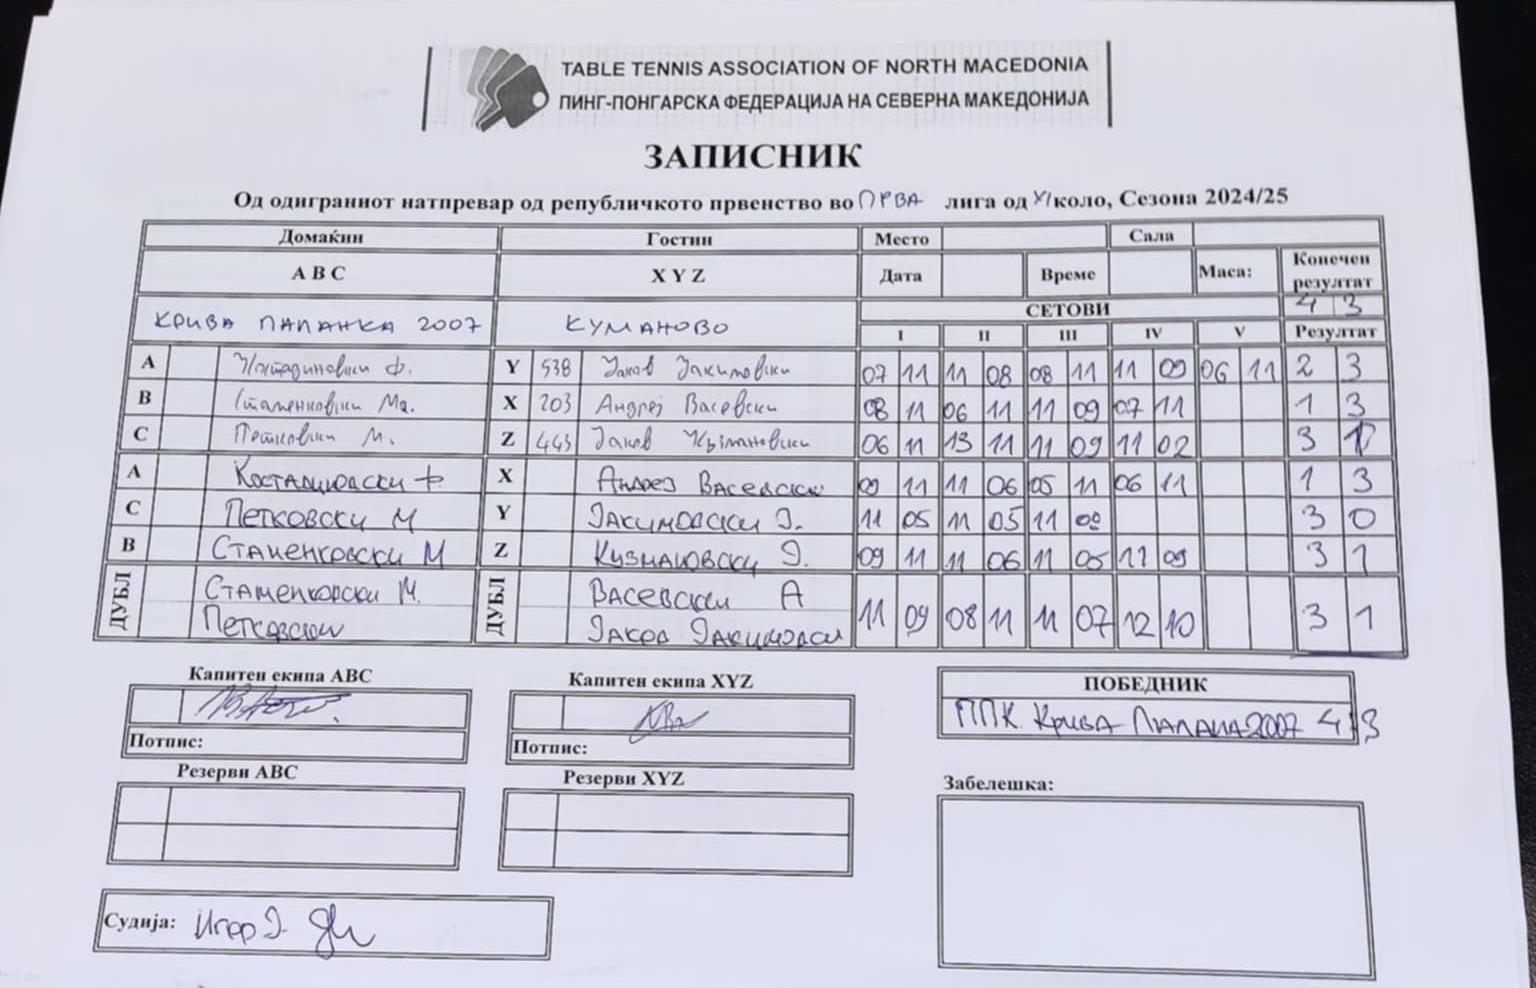 TABLE TENNIS ASSOCIATION OF NORTH MACEDONIA
ПИНГ-ПОНГАРСКА ФЕДЕРАЦИЈА НА СЕВЕРНА МАКЕДОНИЈА
ЗАПИСНИК
Од одиграниот натпревар од републичкото првенство во ПРВА лига од XI коло, Сезона 2024/25
Домаќин Гостин Место Сала
A B C X Y Z Дата Време Маса: Конечен резултат
КРИВА ПАЛАНКА 2007 КУМАНОВО СЕТОВИ 4 3
I II III IV V Резултат
A Костадиновски Ф. Y 538 Јаков Јакимовски 07 11 11 08 08 11 11 09 06 11 2 3
B Стаменковски Ма. X 203 Андреј Васевски 08 11 06 11 11 09 07 11 1 3
C Петковски М. Z 443 Јаков 06 11 13 11 11 09 11 02 3 1
A Ф X Андреј Васевски 09 11 11 06 05 11 06 11 1 3
C Петковски М Y Јакимовски Ј. 11 05 11 05 11 3 0
B Стаменковски М Z Кузмановски Ј. 09 11 11 06 11 05 11 09 3 1
ДУБЛ Стаменковски М. ДУБЛ Васевски А 11 09 08 11 11 07 12 10 3 1
Петковски Јаков Јакимовски
Капитен екипа ABC Капитен екипа XYZ ПОБЕДНИК
ППК Крива Паланка 2007 4 3
Потпис: Потпис:
Резерви ABC Резерви XYZ Забелешка:
Судија: Игор Ј.